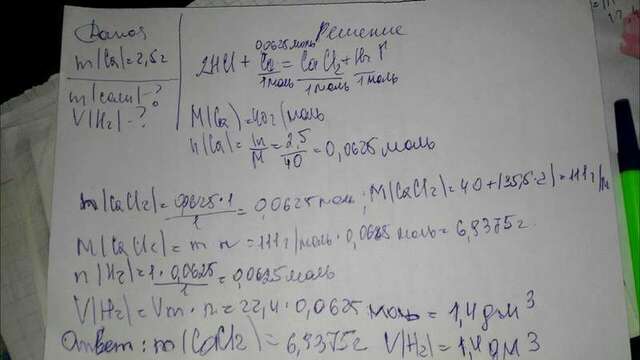 Дано:
m(Ca)=2,5г
m(соли)-?
V(H2)-?
Решение
0,0625 моль
2HCl + Ca = CaCl2 + H2↑
1 моль 1 моль 1 моль
M(Ca)=40г/моль
n(Ca)= m/M = 2,5/40 = 0,0625 моль
n(CaCl2)= 0,0625·1/1 = 0,0625 моль; M(CaCl2)=40+(35,5·2)=111г/м
M(CaCl2)= m n =111г/моль·0,0625 моль=6,9375г
n(H2)= 1·0,0625/1 =0,0625 моль
V(H2)=Vm·n=22,4·0,0625 моль = 1,4 дм³
Ответ: m(CaCl2)= 6,9375г V(H2)=1,4 дм³